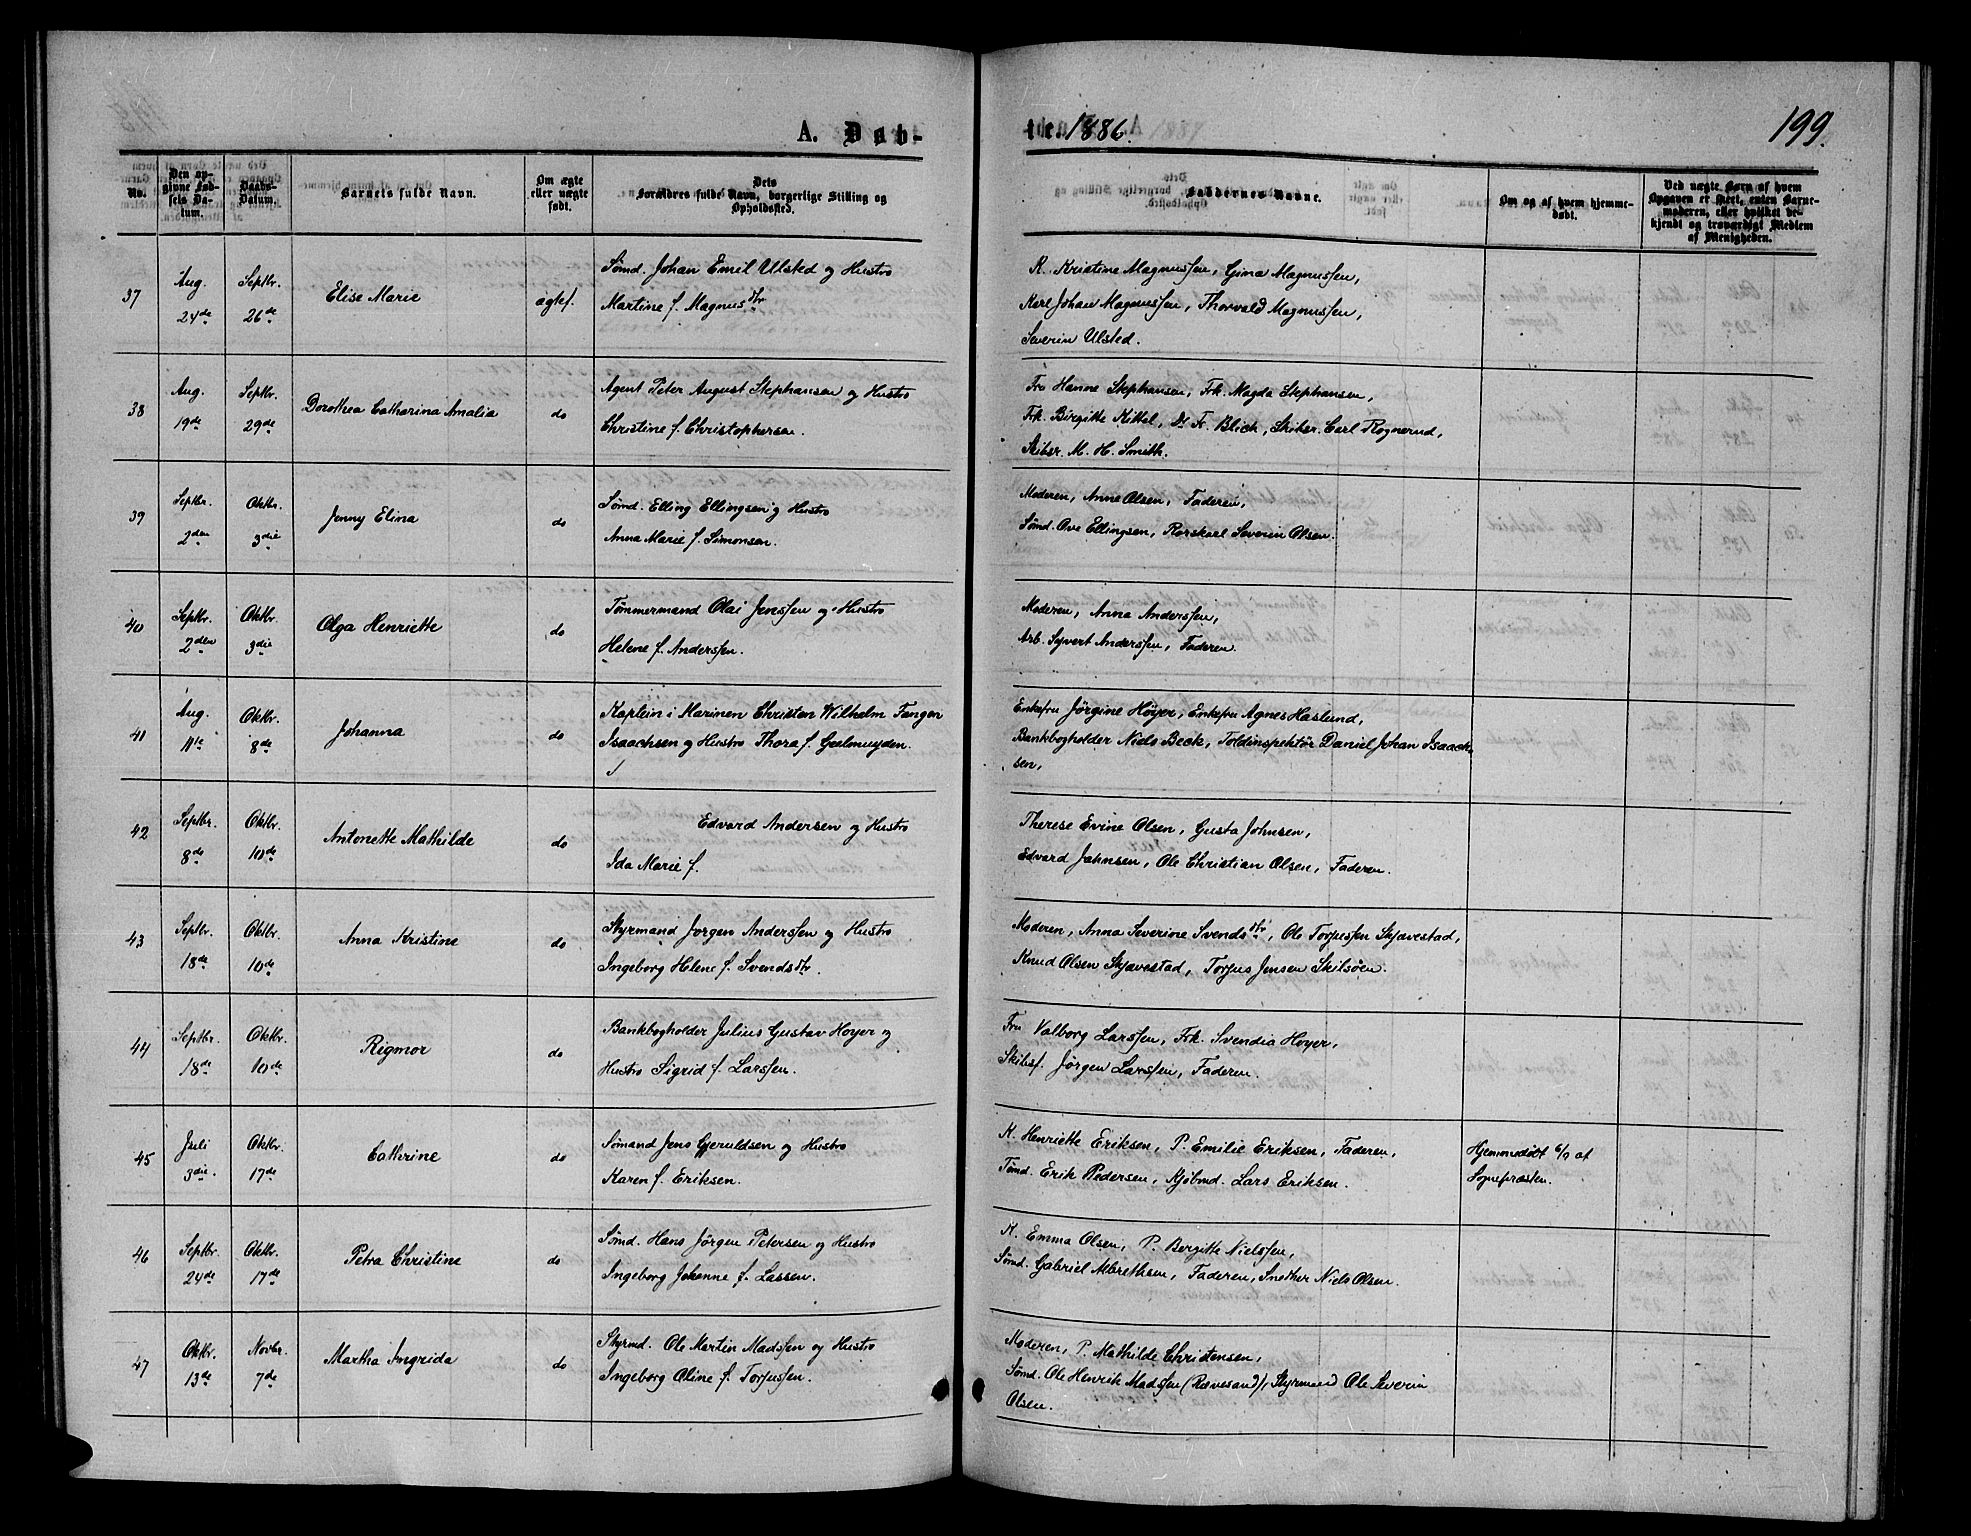 A. Døb-te. 1886.
199.
No.
Den opgivne Fødsels Datum.
Daabs-Datum.
Barnets fulde Navn.
Om ægte eller uægte født.
Dets Forældres fulde Navn, borgerlige Stilling og Opholdssted.
Faddernes Navne.
Om og af hvem hjemmedøbt.
Ved uægte Børn af hvem Opgaven er skeet, enten Barnemoderen, eller hvilket bekjendt og troværdigt Medlem af Menigheden.
37
Aug. 24de
Septbr. 26de
Elise Marie
ægtef.
Sømd. Johan Emil Ulsted og Hustro
Martine f. Magnusdtr
K. Kristine Magnussen, Gina Magnussen,
Karl Johan Magnussen, Thorvald Magnussen,
Severin Ulsted.
38
Aug. 19de
Septbr. 29de
Dorothea Catharina Amalia
do
Agent Peter August Stephansen og Hustro
Christine f. Christophersen.
Fru Hanne Stephansen, Frk. Magda Stephansen,
Frk. Birgitte Kittel, Dr. Fr. Blich, Skibsr. Carl Rognerud,
Skibsr. M. H. Smith.
39
Septbr. 2den
Oktbr. 3die
Jenny Elina
do
Sømd. Elling Ellingsen og Hustro
Anna Marie f. Simonsen.
Moderen, Anne Olsen, Faderen,
Sømd. Ove Ellingsen, Rorskarl Severin Olsen.
40
Septbr. 2den
Oktbr. 3die
Olga Henriette
do
Tømmermand Olai Jenssen og Hustro
Helene f. Anderssen.
Moderen, Anna Anderssen,
Arb. Syvert Anderssen, Faderen.
41
Aug. 11te
Oktbr. 8de
Johanna
do
Kaptein i Marinen Christen Wilhelm Tangen
Isaachsen og Hustro Thora f. Geelmuyden.
Enkefru Jörgine Höyer, Enkefru Agnes Haslund,
Bankbogholder Niels Beck, Toldinspektör Daniel Johan Isaach-
sen,
42
Septbr. 8de
Oktbr. 10de
Antonette Mathilde
do
Edvard Andersen og Hustro
Ida Marie f.
Therese Evine Olsen, Gusta Johnsen,
Edvard Jahnsen, Ole Christian Olsen, Faderen.
43
Septbr. 18de
Oktbr. 10de
Anna Kristine
do
Styrmand Jørgen Anderssen og Hustro
Ingeborg Helene f. Svendsdtr.
Moderen, Anna Severine Svendsdtr, Ole Torjussen Skjævestad,
Knud Olsen Skjævestad, Torjus Jensen Skilsöen.
44
Septbr. 18de
Oktbr. 10de
Rigmor
do
Bankbogholder Julius Gustav Hoyer og
Hustro Sigrid f. Larssen.
Fru Valborg Larssen, Frk. Svendia Hoyer,
Skibsf. Jörgen Larssen, Faderen.
45
Juli 3die.
Oktbr. 17de
Cathrine
do
Sømand Jens Gjeruldsen og Hustro
Karen f. Eriksen.
K. Henriette Eriksen, P. Emilie Eriksen, Faderen,
Tømd. Erik Pedersen, Kjöbmd. Lars Eriksen.
Hjemmedöbt 6/9 af
Sognepræsten.
46
Septbr. 24de
Oktbr. 17de
Petra Christine
do
Sømd. Hans Jörgen Petersen og Hustro
Ingeborg Johanne f. Lassen.
K. Emma Olsen, P. Bergitte Nielssen,
Sömd. Gabriel Albrethsen, Faderen, Snedker Niels Olsen.
47
Oktbr. 13de
Novbr. 7de
Martha Ingrida
do
Styrmd. Ole Martin Madssen og Hustro
Ingeborg Oline f. Torjussen.
Moderen, P. Mathilde Christensen,
Sömd. Ole Henrik Madssen (Rævesand), Styrmand Ole Severin
Olsen.